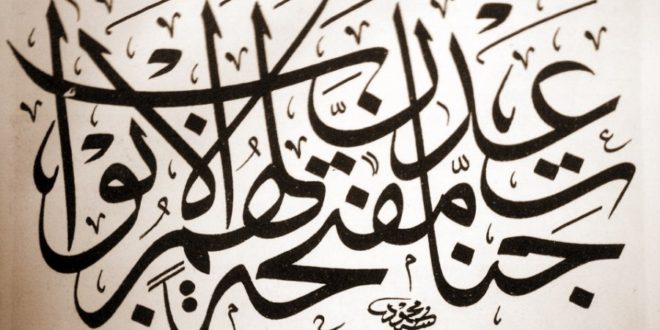 جنات عدن مفتحة لهم الابواب
محمود